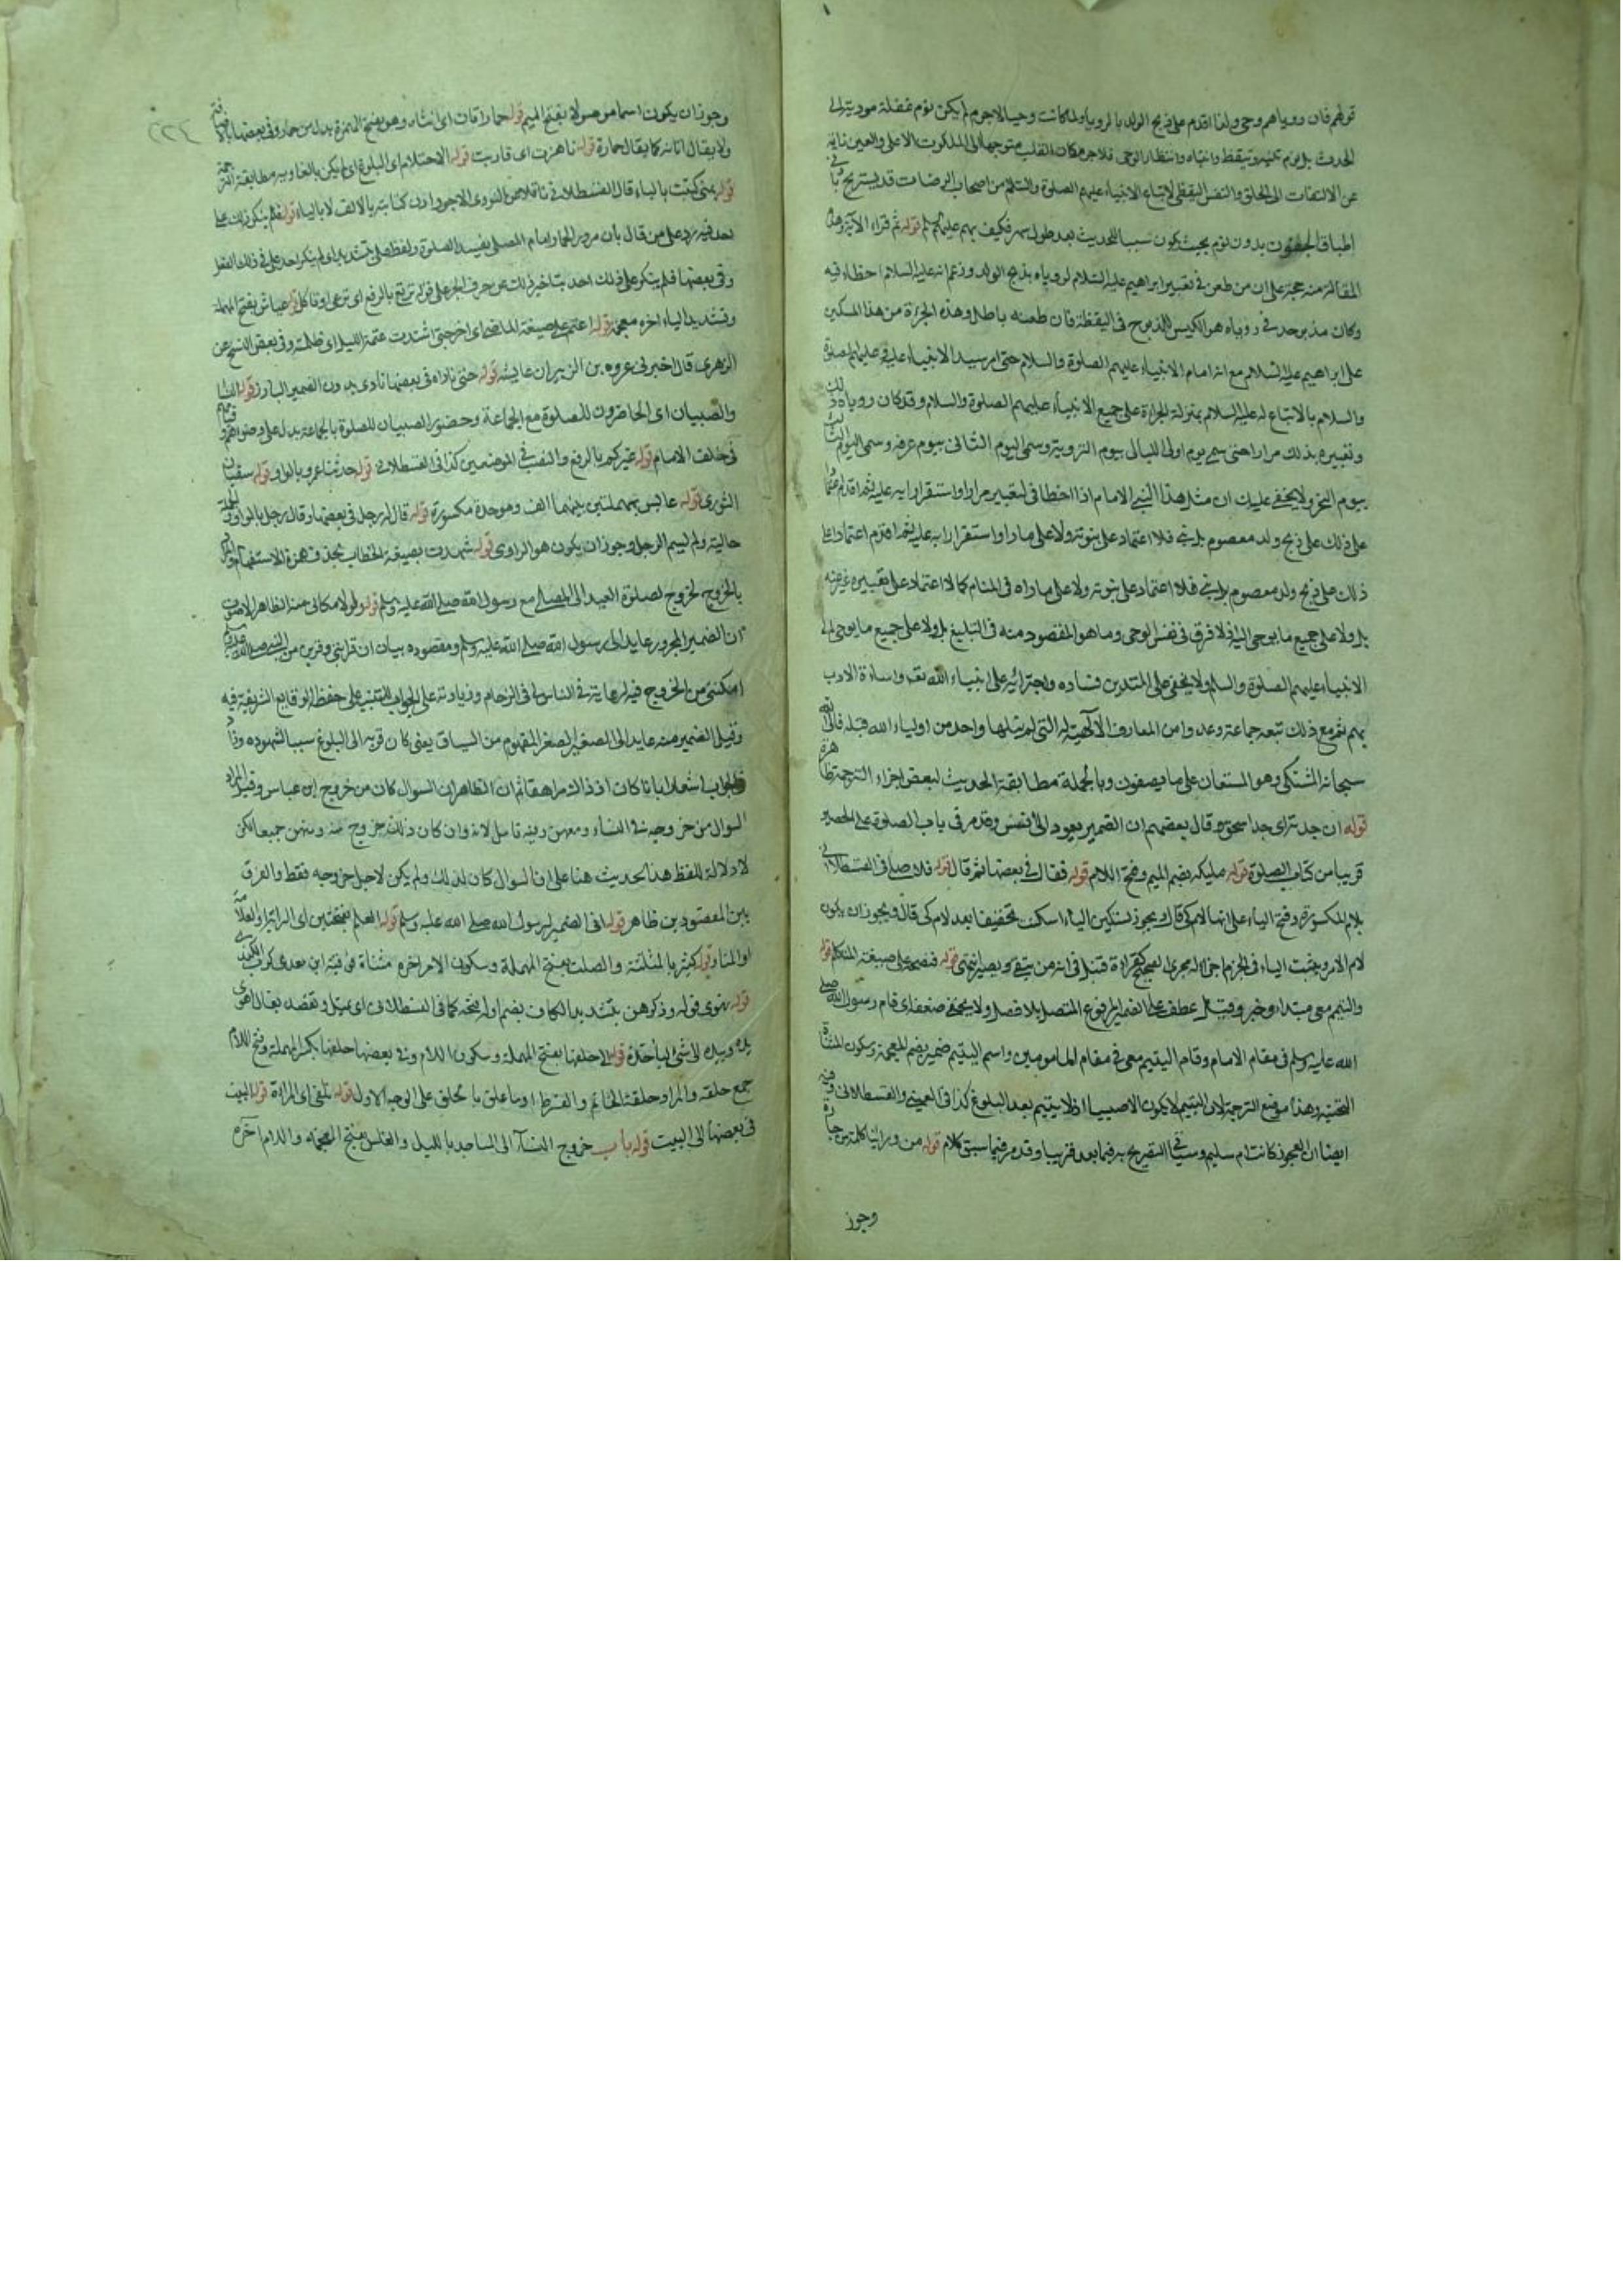 قولهم فان روياهم وحى ولذا اقدم على ذبح الولد بالرويا ولما كانت وحيا لاجرم لم يكن نوم غفلة
الحدث بل نوم تيقظ وانتباه وانتظار الوحى فلا جرم كان القلب متوجها الى الملكوت الاعلى والعين نائمة
عن الالتفات الى الخلق والنفس اليقظى لاتباع الانبياء عليهم الصلوة والسلام من اصحاب الرياضات قد يستريح
اطباق الجفون بدون نوم بحيث يكون سببا للحديث بعد طول سهر فكيف بهم عليهم قوله ثم قراء الآية وهذه
المقالة منه حجة على ان من طعن فى تعبير ابراهيم عليه السلام لروياه بذبح الولد وزعم انه عليه السلام اخطاء فيه
وكان مذبوحه فى روياه هو الكبش المذبوح فى اليقظة فان طعنه باطل وهذه الجراة من هذا المسكين
على ابراهيم عليه السلام مع انه امام الانبياء عليهم الصلوة والسلام حتى امر سيد الانبياء عليه وعليهم الصلوة
والسلام بالاتباع له عليه السلام بمنزلة الجراة على جميع الانبياء عليهم الصلوة والسلام وقد كان روياه ذلك
وتعبيره بذلك مرارا حتى سمى يوم اولى الليالى بيوم التروية وسمى اليوم الثانى بيوم عرفه وسمى اليوم الثالث
بيوم النحر ولا يخفى عليك ان مثل هذا النبى الامام اذا اخطا فى تعبير مرارا واستقر رايه عليه ثم اقدم
على ذلك على ذبح ولد معصوم بل نبى فلا اعتماد على نبوته ولا على ما راه واستقر رايه عليه ثم اقدم اعتمادا على
ذلك على ذبح ولد معصوم بل نبى فلا اعتماد على نبوته ولا على ما راه فى المنام كما لا اعتماد على تعبيره
بل ولا على جميع ما يوحى اليه اذ لا فرق فى نفس الوحى وما هو المقصود منه فى التبليغ بل ولا على جميع ما يوحى الى
الانبياء عليهم الصلوة والسلام ولا يخفى على المتدين فساده واجترائه على انبياء الله تعه واساءة الادب
بهم ثم مع ذلك تبعه جماعة وعدوا من المعارف الالهية التى لم ينلها واحد من اولياء الله قبله فالى الله
سبحانه المشتكى وهو المستعان على ما يصفون وبالجملة مطابقة الحديث لبعض اجزاء الترجمة ظاهرة
قوله ان جدته اى جدة اسحق وقال بعضهم ان الضمير يعود الى انس وقد مر فى باب الصلوة على الحصير
قريبا من كتاب الصلوة قوله مليكه بضم الميم وفتح اللام قوله فقال فى بعضها ثم قال قوله فلاصلى فى القسطلانى
بلام المكسورة وفتح الياء على انها لام كى قال يجوز تسكين الياء اسكنت تخفيفا بعد لام كى قال ويجوز ان يكون
لام الامر ويثبت الياء فى الجزم اجراء له مجرى الصحيح كقراءة قنبل فى انه من يتقى ويصبر انتهى قوله فنضحته على صيغة المتكلم قوله
واليتيم معى مبتداء وخبر وقيل عطف على الضمير المرفوع المتصل بلا فصل ولا يخفى ضعفه اى قام رسول الله صلى
الله عليه وسلم فى مقام الامام وقام اليتيم معى فى مقام المامومين واسم اليتيم ضميرة بضم المعجمة وسكون المثناة
التحتية وهذا موضع الترجمة لان اليتيم لا يكون الا صبيا اذ لا يتيم بعد البلوغ كذا فى العينى والقسطلانى وفيه
ايضا ان العجوز كانت ام سليم وسياتى التصريح به فيما بعد قريبا وقد مر فيما سبق كلام قوله من ورائنا كلمة من جارة
وجوز
٢٢٤
وجوز ان يكون اسما موصولا بفتح الميم قوله حمار اتان اى انثاه وهو بفتح الهمزة بدل من حمار وفى بعضها بالاضافة
ولا يقال اتانة كما يقال حمارة قوله ناهزت اى قاربت قوله الاحتلام اى البلوغ اى لم يكن بالغا وبه مطابقة الترجمة
قوله بمنى كتبت بالياء قال القسطلانى ناقلا عن النووى الاجود ان كتابته بالالف لا بالياء قوله فلم ينكر ذلك على
احد فيه رد على من قال بان مرور الحمار امام المصلى يفسد الصلوة
وفى بعضها فلم ينكر على ذلك احد بتاخير ذلك عن حرف الجر على قوله ترتع بالرفع اى ترعى او تاكل قوله عياش بفتح المهملة
وتشديد الياء اخره معجمة قوله اعتم على صيغة الماضى اى اخر حتى اشتدت عتمة الليل اى ظلمته وفى بعض النسخ عن
الزهرى قال اخبرنى عروه بن الزبير ان عايشه قوله حتى ناداه فى بعضها نادى بدون الضمير البارز قوله النساء
والصبيان اى الحاضرون للصلوة مع الجماعة وحضور الصبيان للصلوة بالجماعة يدل على وضوءهم وقيامهم
فى خلف الامام قوله غيركم بالرفع والنصب فى الموضعين كذا فى القسطلانى قوله حدثنا عمرو بالواو قوله سفيان
الثورى قوله عابس بمهملتين بينهما الف وموحدة مكسورة قوله قال له رجل فى بعضها وقال رجل بالواو والجملة
حالية ولم يسم الرجل وجوز ان يكون هو الراوى قوله شهدت بصيغة الخطاب بحذف همزة الاستفهام
بالخروج الخروج لصلوة العيد الى المصلى مع رسول الله صلى الله عليه وسلم قوله ولولا مكانى منه الظاهر
ان الضمير المجرور عايد الى رسول الله صلى الله عليه وسلم ومقصوده بيان ان قرابتى وقربى من النبى صلى الله عليه وسلم
امكننى من الخروج فيه لرعايته فى الناس لى فى الزحام وزيادته على الجواب للتنبيه على حفظه الوقايع الشريفة فيه
وقيل الضمير منه عايد الى الصغير الصغر المفهوم من السياق يعنى كان قربه الى البلوغ سببا لشهوده
فى الجواب اشعارا بانه كان اذ ذاك مراهقا ثم ان الظاهر ان السوال كان من خروج ابن عباس وقيل المراد
السوال من خروجه فى النساء ومعهن وفيه تامل لانه وان كان ذلك خروج منه ومنهن جميعا لكن
لا دلالة للفظ هذا الحديث هنا على ان السوال كان لذلك ولم يكن لاجل خروجه فقط والفرق
بين المقصودين ظاهر قوله اتى الضمير لرسول الله صلى الله عليه وسلم قوله العلم بفتحتين اى الراية او العلامة
او المنار قوله كثير بالمثلثة والصلت بفتح المهملة وسكون اللام اخره مثناة فوقية ابن معدى كرب الكندى
قوله تهوى قوله وذكرهن بتشديد الكاف بضم اوله او فتحه كما فى القسطلانى اى تميل وتقصد يقال اهوى
يده وبيده الى شى لياخذه قوله الى حلقها بفتح المهملة وسكون اللام وفى بعضها حلقها بكسر المهملة وفتح اللام
جمع حلقه والمراد حلقة الخاتم والقرط او ما علق بالحلق على الوجه الاول قوله تلقى اى المراة قوله البيت
فى بعضها الى البيت قوله باب خروج النساء الى المساجد بالليل والغلس بفتح المعجمة واللام اخره